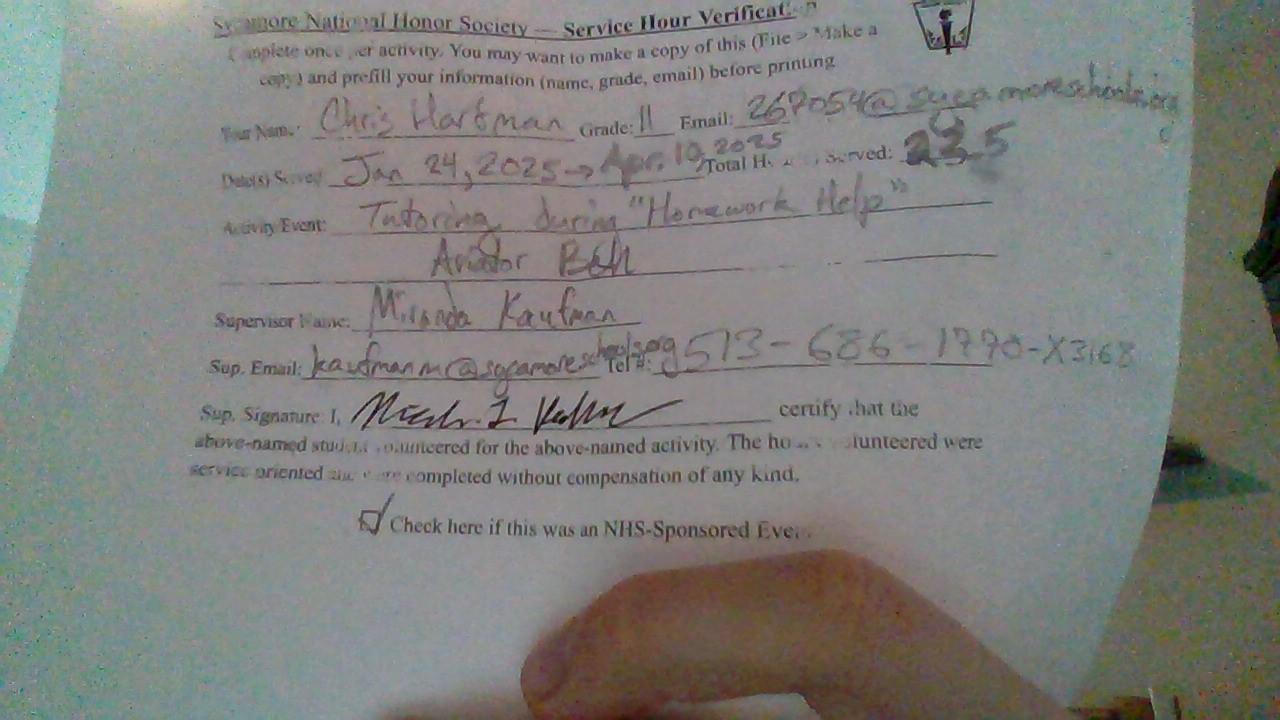 Sycamore National Honor Society — Service Hour Verification
Complete once per activity. You may want to make a copy of this (File > Make a
copy) and prefill your information (name, grade, email) before printing
Your Name: Chris Hartman Grade: 11 Email: 267054@sycamoreschools.org
Date(s) Served: Jan 24, 2025 → Apr. 10, 2025 Total Hours Served:
Activity/Event: Tutoring during "Homework Help"
Aviator
Supervisor Name: Miranda Kaufman
Sup. Email: kaufmanmr@sycamoreschools.org Tel #: 513-686-1770-X3168
Sup. Signature: I, certify that the
above-named student volunteered for the above-named activity. The hours volunteered were
service oriented and were completed without compensation of any kind.
Check here if this was an NHS-Sponsored Event